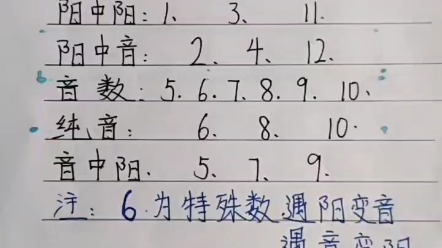 阳中阳：1、 3、 11.
阳中音： 2、 4、 12.
音数：5.6.7、8、9、10、
纯音： 6、 8、 10.
音中阳. 5、 7、 9.
注：6.为特殊数.遇阳变音
遇音变阳